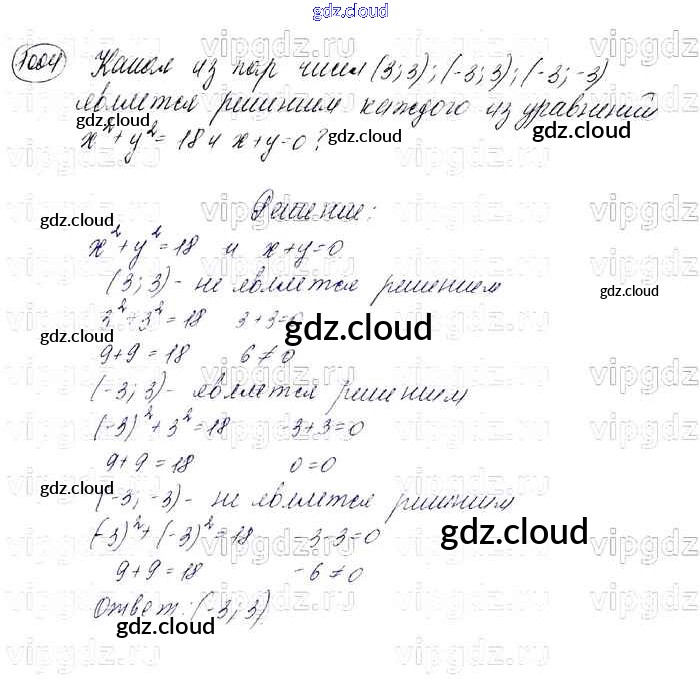 gdz.cloud
1004 Какая из пар чисел (3; 3); (-3; 3); (-3; -3)
является решением каждого из уравнений
gdz.cloud gdz.cloud
x² + y² = 18 и x + y = 0? gdz.cloud
Решение:
gdz.cloud gdz.cloud
x² + y² = 18 и x + y = 0
(3; 3) - не является решением
gdz.cloud
3² + 3² = 18 3 + 3 = 0
gdz.cloud gdz.cloud
9 + 9 = 18 6 ≠ 0
(-3; 3) - является решением
(-3)² + 3² = 18 -3 + 3 = 0
9 + 9 = 18 0 = 0
gdz.cloud
(-3; -3) - не является решением
(-3)² + (-3)² = 18 -3 - 3 = 0 gdz.cloud
9 + 9 = 18 -6 ≠ 0
gdz.cloud
Ответ: (-3; 3)
gdz.cloud gdz.cloud